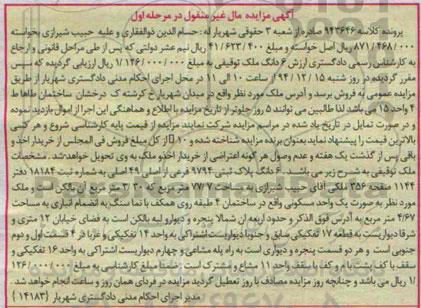 آگهی مزایده مال غیر منقول در مرحله اول
پرونده کلاسه ۹۴۳۶۴۶ صادره از شعبه ۳ حقوقی شهریار له: حسام الدین ذوالفقاری و علیه حبیب شیرازی بخواسته
۸۷۱/۴۶۸/۰۰۰ ریال اصل خواسته و مبلغ ۴۱/۶۲۳/۴۰۰ ریال نیم عشر دولتی که پس از طی مراحل قانونی و ارجاع
به کارشناس رسمی دادگستری ارزش ۶ دانگ ملک توقیفی به مبلغ ۱/۱۲۶/۰۰۰/۰۰۰ ریال ارزیابی گردیده که سپس
مقرر گردیده در روز شنبه ۹۴/۱۲/۱۵ ساعت ۱۰ الی ۱۱ در محل اجرای احکام مدنی دادگستری شهریار از طریق
مزایده عمومی به فروش برسد و آدرس ملک مورد نظر واقع در میدان شهریارخ کرشته ک درخشان ساختمان طاها ط
۴ واحد ۱۵ می باشد لذا طالبین می توانند ۵ روز جلوتر از تاریخ مزایده با اطلاع و هماهنگی این اجرا از اموال بازدید نموده
و در صورت تمایل در تاریخ یاد شده در مراسم مزایده شرکت نمایند مزایده از قیمت پایه کارشناسی شروع و هر کسی
بالاترین قیمت را پیشنهاد نماید بعنوان برنده مزایده شناخته شده و ۱۰٪ از کل مبلغ فروش فی المجلس از خریدار اخذ و
باقی پس از گذشت یک هفته و عدم وصول هر گونه اعتراضی از خریدار اخذ و ملک به وی تحویل خواهد شد. مشخصات
ملک توقیفی به شرح زیر می باشد: ۶ دانگ پلاک ثبتی ۹۷۹۴ فرعی از اصلی ۴۹ اصلی به شماره ثبت ۱۸۱۸۴ دفتر
۱۱۴۴ صفحه ۳۵۶ ملکی آقای حبیب شیرازی به مساحت ۷۷/۰۷ متر مربع که ۳/۳۰ متر مربع آن بالکن است و ملک
مورد نظر به صورت یک واحد مسکونی واقع در ساختمان ۴ طبقه روی همکف با نما سنگ به انضمام انباری به مساحت
۴/۶۷ متر مربع به آدرس فوق الذکر و حدود اربعه آن شمالا پنجره و دیوار و لبه بالکن است به فضای خیابان ۱۲ متری و
شرقا دیواریست به قطعه ۱۷ تفکیکی سابق و جنوبا دیواریست اشتراکی به واحد ۱۴ تفکیکی و غربا در ۴ قسمت اول و دوم
جنوبی است و هر دو قسمت پنجره و دیواری است به راه پله مشاعی و چهارم دیواریست اشتراکی به واحد ۱۶ تفکیکی و
سقف با کف پشت بام و کف با سقف واحد ۱۱ مشاع و مشترک است. ضمنا مبلغ کارشناسی به مبلغ ۱/۱۲۶/۰۰۰/۰۰۰
ریال می باشد و چنانچه روز مزایده مصادف با روز تعطیل گردید مزایده در فردای همان روز و ساعت انجام خواهد شد.
مدیر اجرای احکام مدنی دادگستری شهریار (۱۴۱۸۳)